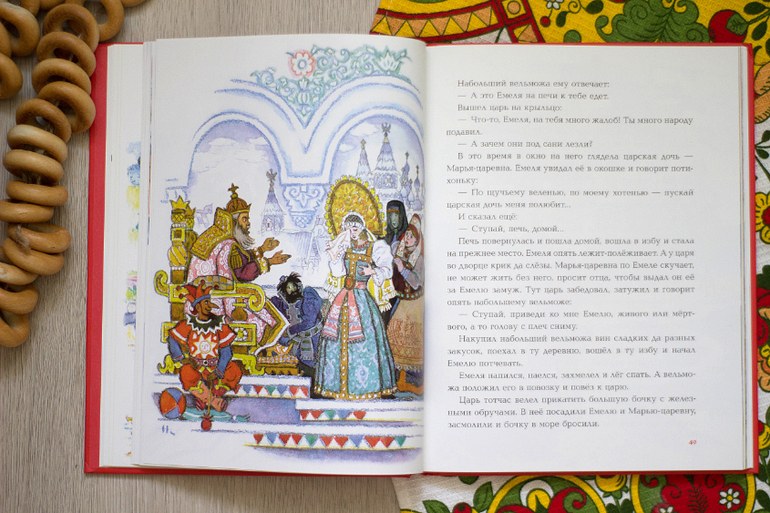 Набольший вельможа ему отвечает:
— А это Емеля на печи к тебе едет.
Вышел царь на крыльцо:
— Что-то, Емеля, на тебя много жалоб! Ты много народу
подавил.
— А зачем они под сани лезли?
В это время в окно на него глядела царская дочь —
Марья-царевна. Емеля увидал её в окошке и говорит поти-
хоньку:
— По щучьему веленью, по моему хотенью — пускай
царская дочь меня полюбит...
И сказал ещё:
— Ступай, печь, домой...
Печь повернулась и пошла домой, вошла в избу и стала
на прежнее место. Емеля опять лежит-полёживает. А у царя
во дворце крик да слёзы. Марья-царевна по Емеле скучает,
не может жить без него, просит отца, чтобы выдал он её
за Емелю замуж. Тут царь забедовал, затужил и говорит
опять набольшему вельможе:
— Ступай, приведи ко мне Емелю, живого или мёрт-
вого, а то голову с плеч сниму.
Накупил набольший вельможа вин сладких да разных
закусок, поехал в ту деревню, вошёл в ту избу и начал
Емелю потчевать.
Емеля напился, наелся, захмелел и лёг спать. А вельмо-
жа положил его в повозку и повёз к царю.
Царь тотчас велел прикатить большую бочку с желез-
ными обручами. В неё посадили Емелю и Марью-царевну,
засмолили и бочку в море бросили.
49